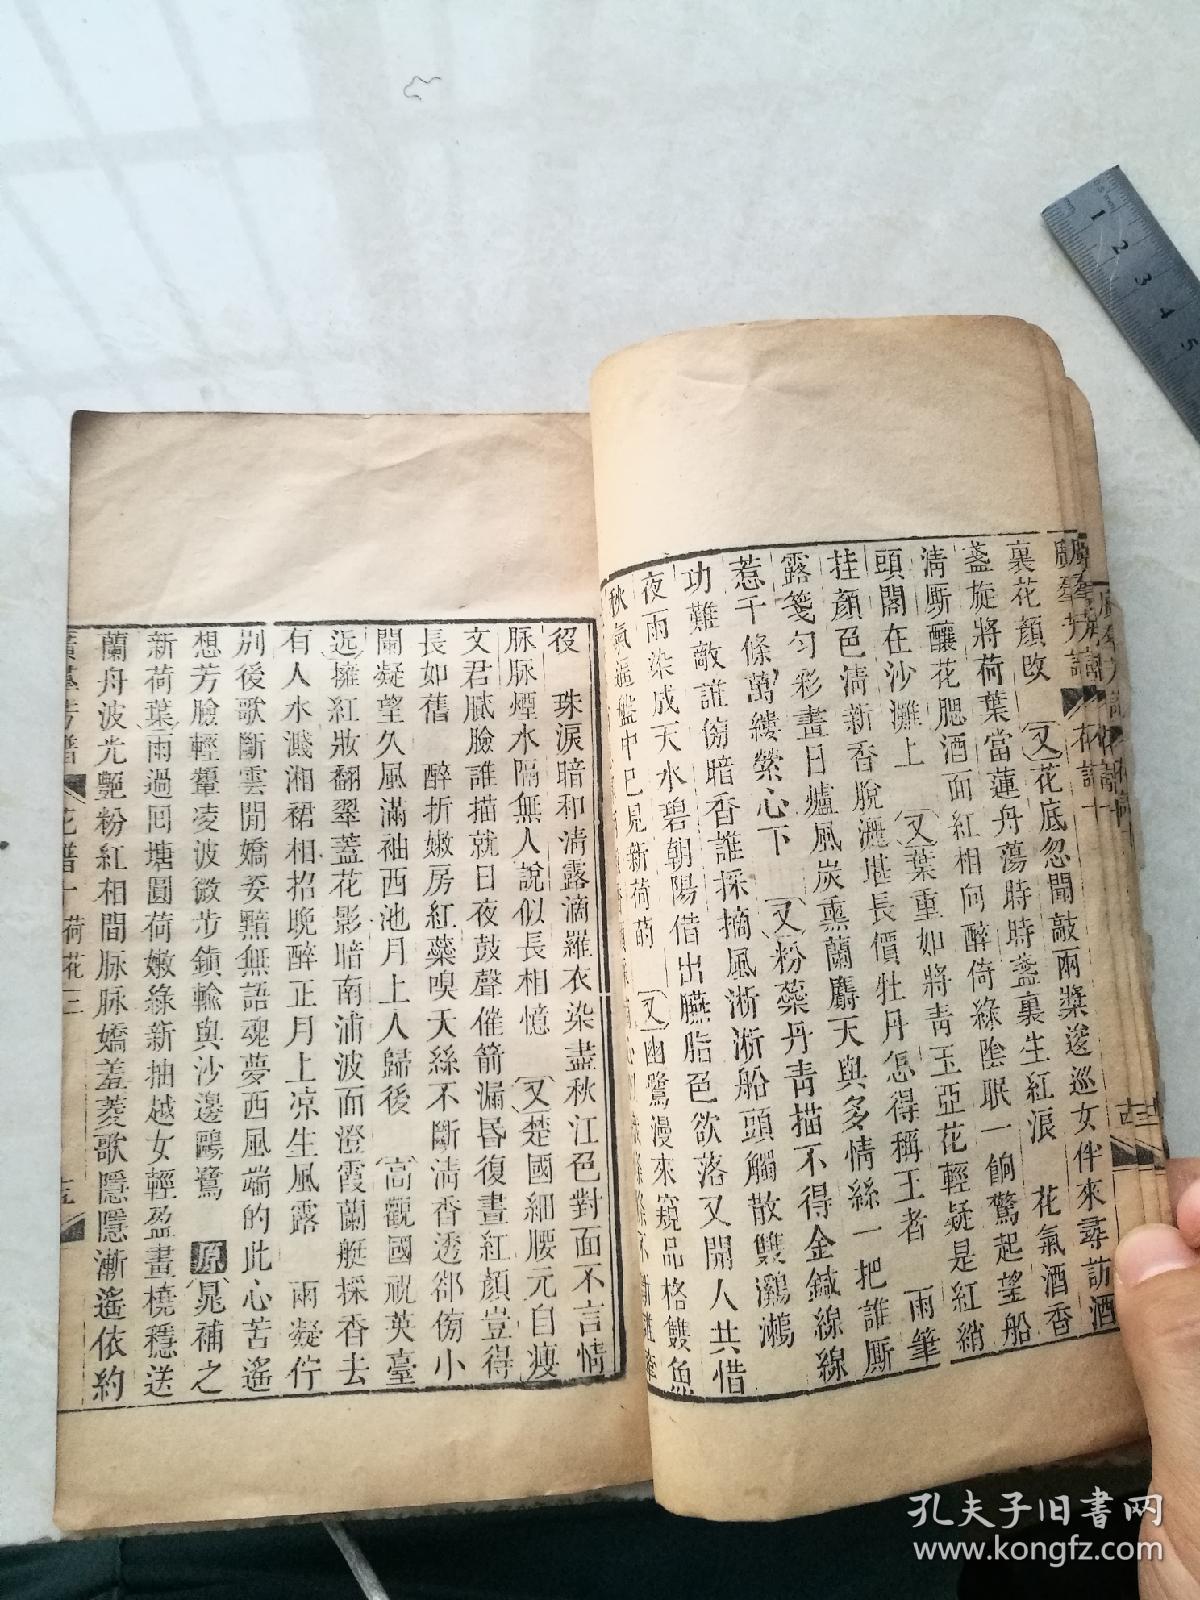 裏花顏改　又花底忽聞敲兩槳逡巡女伴來尋訪酒
盞旋將荷葉當蓮舟蕩時時盞裏生紅浪　花氣酒香
清厮釀花腮酒面紅相向醉倚綠陰眠一餉驚起望船
頭閣在沙灘上　又葉重如將青玉亞花輕疑是紅綃
挂顏色清新香脫灑堪長價牡丹怎得稱王者　雨筆
露箋勻彩畫日爐風炭熏蘭麝天與多情絲一把誰厮
惹千條萬縷縈心下　又粉蘂丹青描不得金鍼線線
功難敵誰傍暗香誰採摘風淅淅船頭觸散雙鸂鶒
夜雨染成天水碧朝陽借出臙脂色欲落又開人共惜
秋氣逼盤中已見新荷菂　又幽鷺漫來窺品格雙魚
役　珠淚暗和清露滴羅衣染盡秋江色對面不言情
脉脉煙水隔無人說似長相憶　又楚國細腰元自瘦
文君膩臉誰描就日夜鼓聲催箭漏昏復晝紅顏豈得
長如舊　醉折嫩房紅蘂嗅天絲不斷清香透卻傍小
闌凝望久風滿袖西池月上人歸後　高觀國祝英臺
近擁紅妝翻翠蓋花影暗南浦波面澄霞蘭艇採香去
有人水濺湘裙相招晚醉正月上凉生風露　雨凝佇
別後歌斷雲閒嬌姿黯無語魂夢西風端的此心苦遙
想芳臉輕顰凌波微步鎮輸與沙邊鷗鷺　原晁補之
新荷葉雨過回塘圓荷嫩綠新抽越女輕盈畫橈穩送
蘭舟波光艷粉紅相間脉脉嬌羞菱歌隱隱漸遙依約
廣羣芳譜　花譜十　荷花三
孔夫子旧书网
www.kongfz.com
1
2
3
4
5